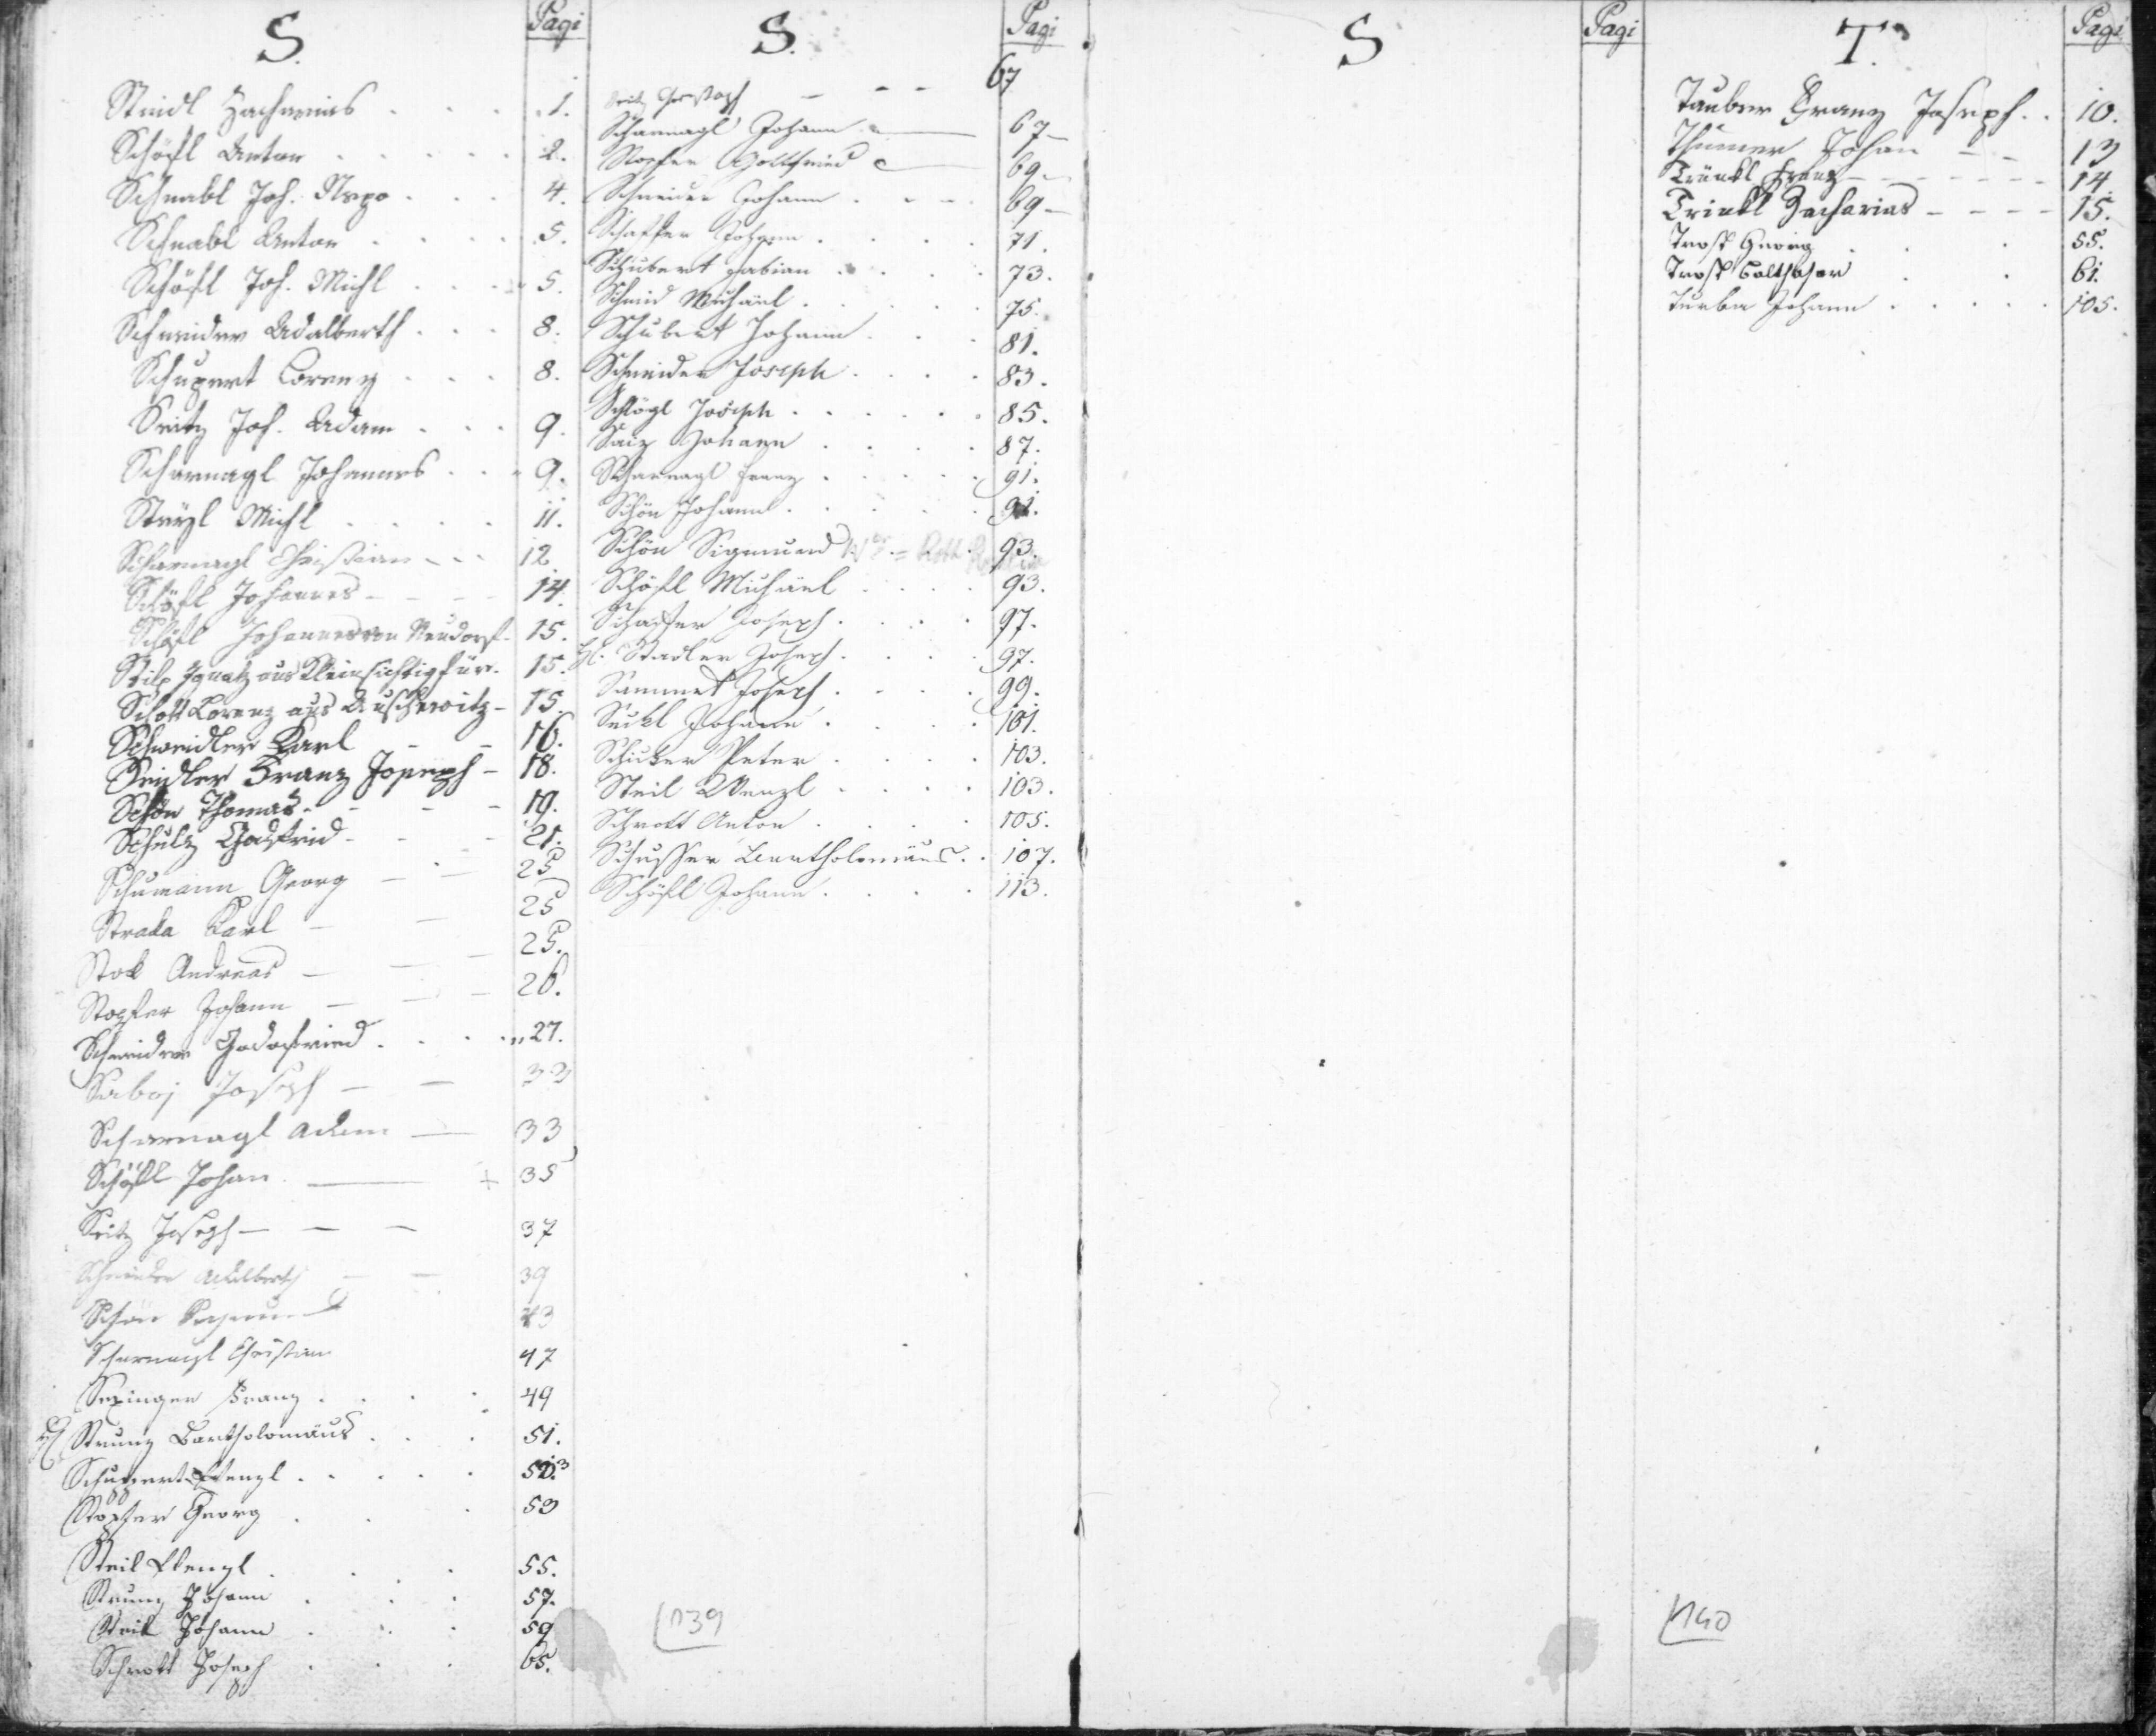 S. Pagi
Steidl Zacharias . . . 1.
Schöfl Anton . . . . . 2.
Schnabl Joh. Nepo . . . 4.
Schnabl Anton . . . . 5.
Schöfl Joh. Michl . . . 5.
Schneider Adalberth . . . 8.
Schupert Lorenz . . . 8.
Seitz Joh. Adam . . . 9.
Scharnagl Johannes . . . 9.
Michl . . . . 11.
Scharnagl Christian - - - 12
Schöfl Johannes - - - 14.
Schöfl Johannes von Neudorf - 15.
Stilp Ignatz aus Kleinsichtigfür - 15.
Schott Lorenz aus Auschowitz - 15.
Schneidler Karl - - 16.
Seidler Franz Joseph - 18.
Schön Thomas - - - 19.
Schulz Godfrid - - - 21.
Schumann Georg - - 25
Straka Karl - - 25
Stok Andreas - - - 25.
Stopfer Johann - - - 26.
Schneider Godofried . . . „ 27.
Joseph - - 33
Scharnagl Adam — 33
Schöfl Johan — + 35
Seitz Joseph - - - 37
Schneider Adalberth - - 39
Schön Sigmund 43
Scharnagl Christian 47
Sexinger Franz . . . . 49
Strunz Bartholomäus . . . 51.
Schuppert Wenzl . . . . . 53
Stopfer Georg . . . 53
Steil Wenzl . . . 55.
Strunz Johann . . . 57.
Steil Johann . . . 59
Schrott Joseph . . . 65.
S. Pagi
Seitz Christoph - - - 67
Scharnagl Johann — 67-
Stopfer Gottfried — 69-
Schneider Johann . . - 69-
Schaffer Johann . . . . 71.
Schubert Fabian . . . . 73.
Schmid Michäel . . . . . 75.
Schubert Johann . . . 81.
Schneider Joseph . . . . 83.
Schlögl Joseph . . . . . 85.
Saiz Johann . . . . 87.
Scharnagl Franz . . . . . 91.
Schön Johann . . . . . 91.
Schön Sigmund = Roth 93.
Schöfl Michäel . . . . 93.
Schaffer Joseph . . . . 97.
Stadler Joseph . . . . 97.
Sammet Joseph . . . . 99.
Seckl Johann . . . . 101.
Schicker Peter . . . . 103.
Steil Wenzl . . . . 103.
Schrott Anton . . . . 105.
Schusser Bartholomäus . . 107.
Schöfl Johann . . . . 113.
139
S Pagi
T. Pagi
Tauber Franz Joseph . . 10.
Thumer Johan - - 13
Trinkl Franz - - - - - 14.
Trinkl Zacharias - - - - 15.
Trost Georg . . 55.
Trost Balthasar . . 61.
Turba Johann . . . . . 105.
140